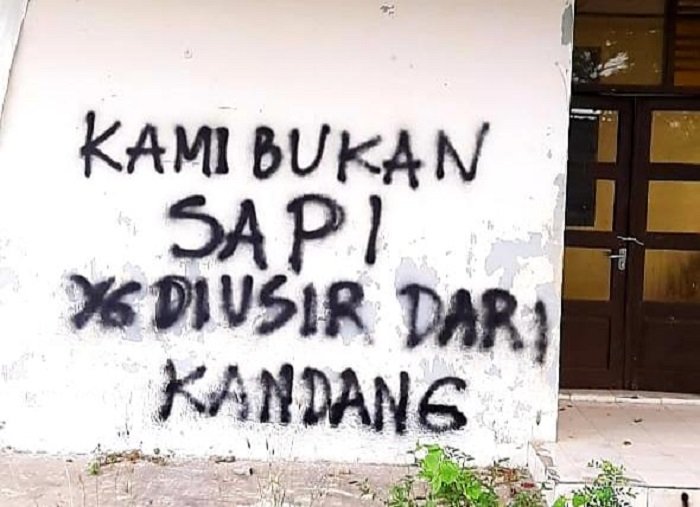 KAMI BUKAN
SAPI
YG DIUSIR DARI
KANDANG